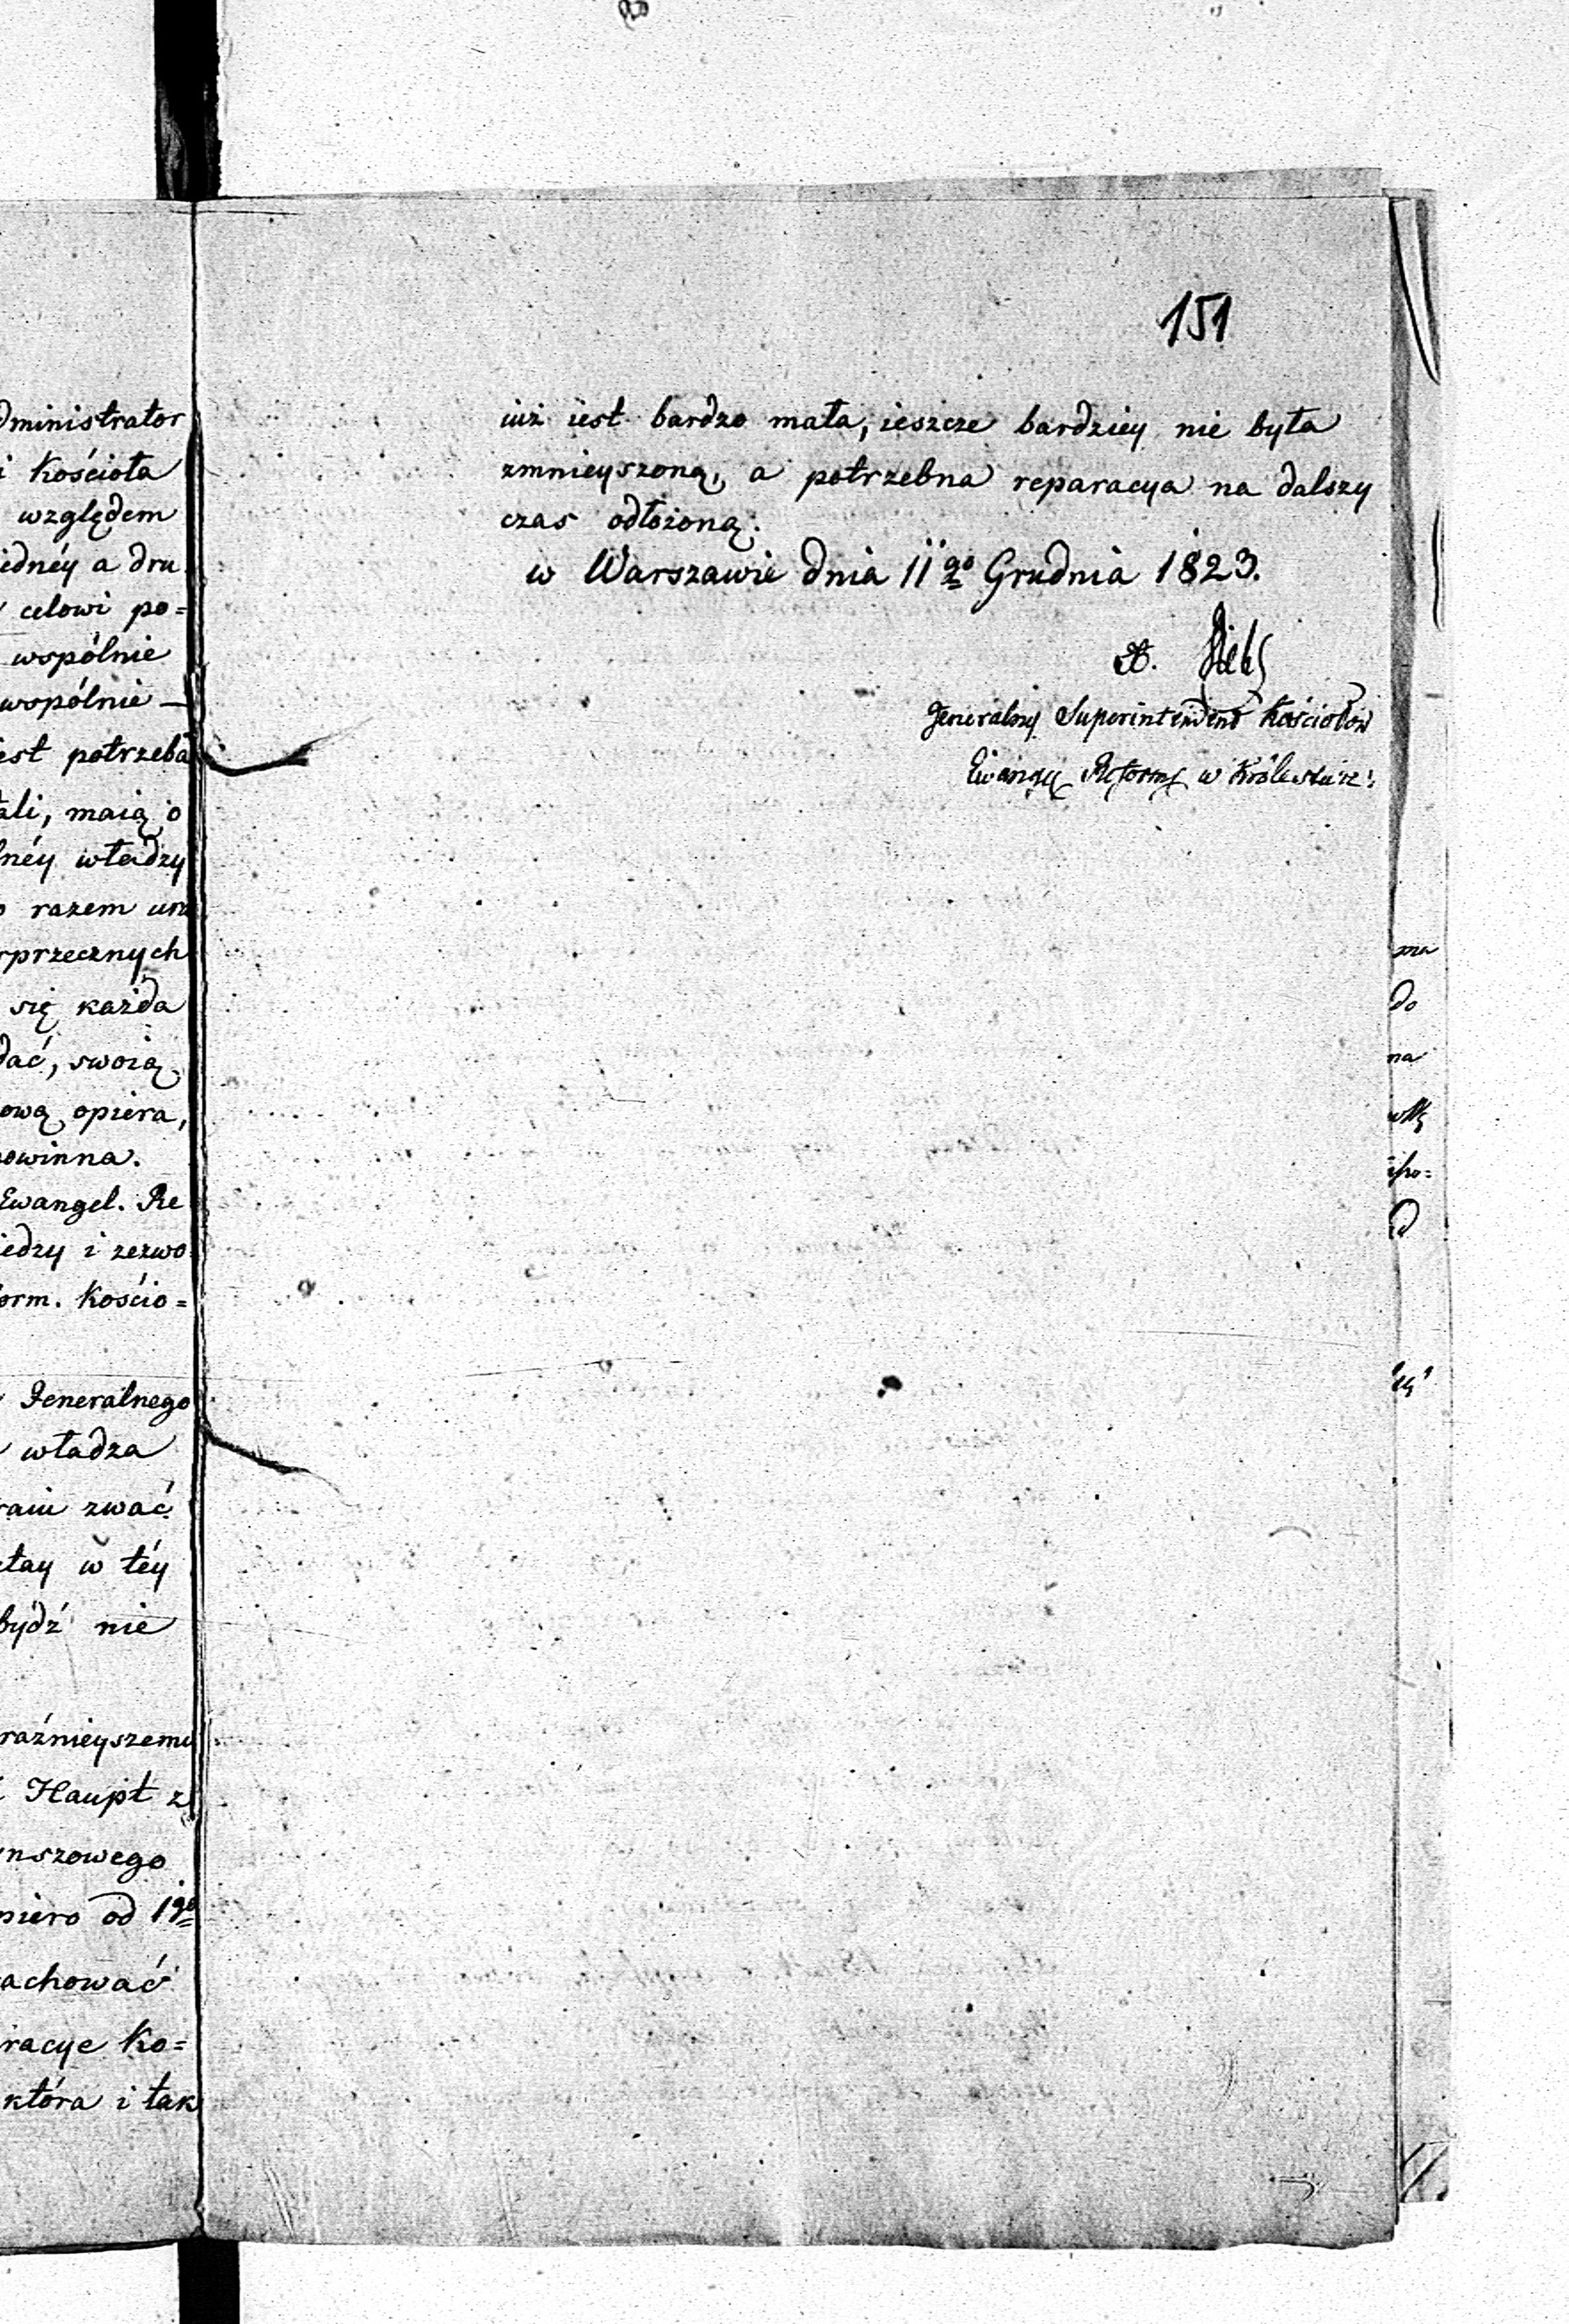 dministrator
i Kościoła
względem
iednéy a dru
celowi po=
wspólnie
wspólnie —
est potrzeba
ali, maią o
lnéy władzy
razem urz
przecznych
się każda
dać, swoią
ową opiera,
owinna.
Ewangel. Re
iedzy i zezwo
orm. Kościo=
Jeneralnego
władza
raiu zwać
tay w téy
bydź nie
raźnieyszemu
Haupt z
nszowego
piero od 1go
achować
racye Ko=
która i tak
151
iuż iest bardzo mała, ieszcze bardziey nie była
zmnieyszoną, a potrzebna reparacya na dalszy
czas odłożoną.
w Warszawie dnia 11go Grudnia 1823.
Jeneralny Superintendent Kościołow
Ewang Reform w Królestwie:
ma
do
na